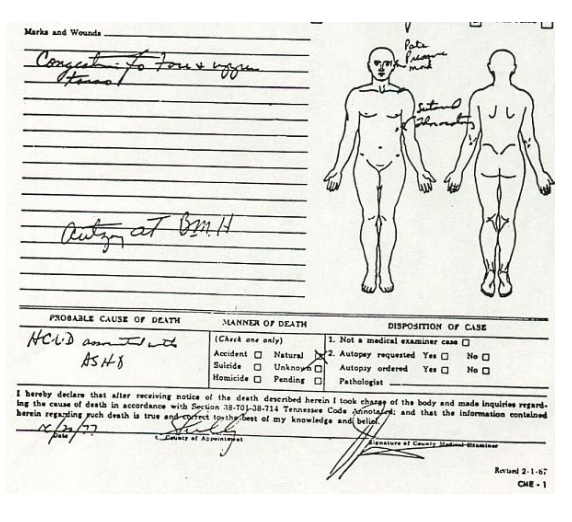 Marks and Wounds
Congestion to face & upper
torso
Pale
Pressure
mark
Sutured
Autopsy AT BMH
PROBABLE CAUSE OF DEATH
MANNER OF DEATH
DISPOSITION OF CASE
HCVD associated with
ASHD
(Check one only)
Accident Natural
Suicide Unknown
Homicide Pending
1. Not a medical examiner case
2. Autopsy requested Yes No
Autopsy ordered Yes No
Pathologist
I hereby declare that after receiving notice of the death described herein I took charge of the body and made inquiries regard-
ing the cause of death in accordance with Section 38-701-38-714 Tennessee Code Annotated; and that the information contained
herein regarding such death is true and correct to the best of my knowledge and belief.
Shelby
Date
County of Appointment
Signature of County Medical Examiner
Revised 2-1-67
CME - 1